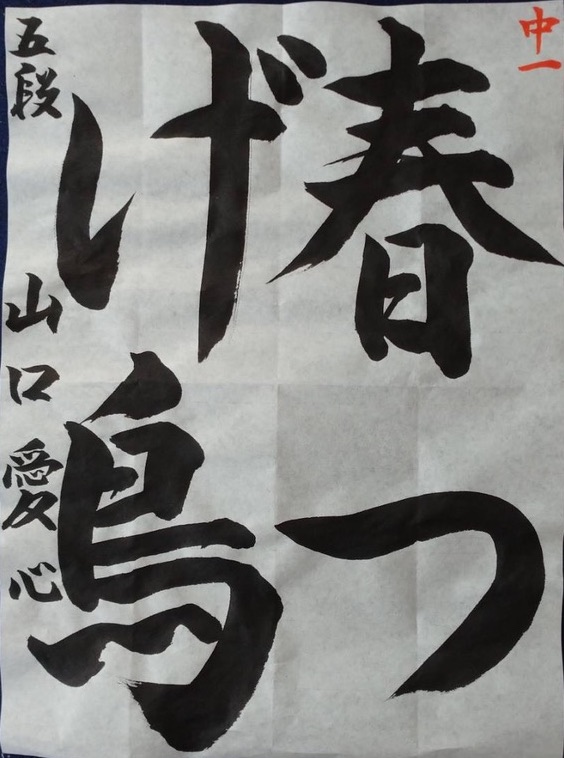 中一
春つ
げ鳥
五段 山口愛心